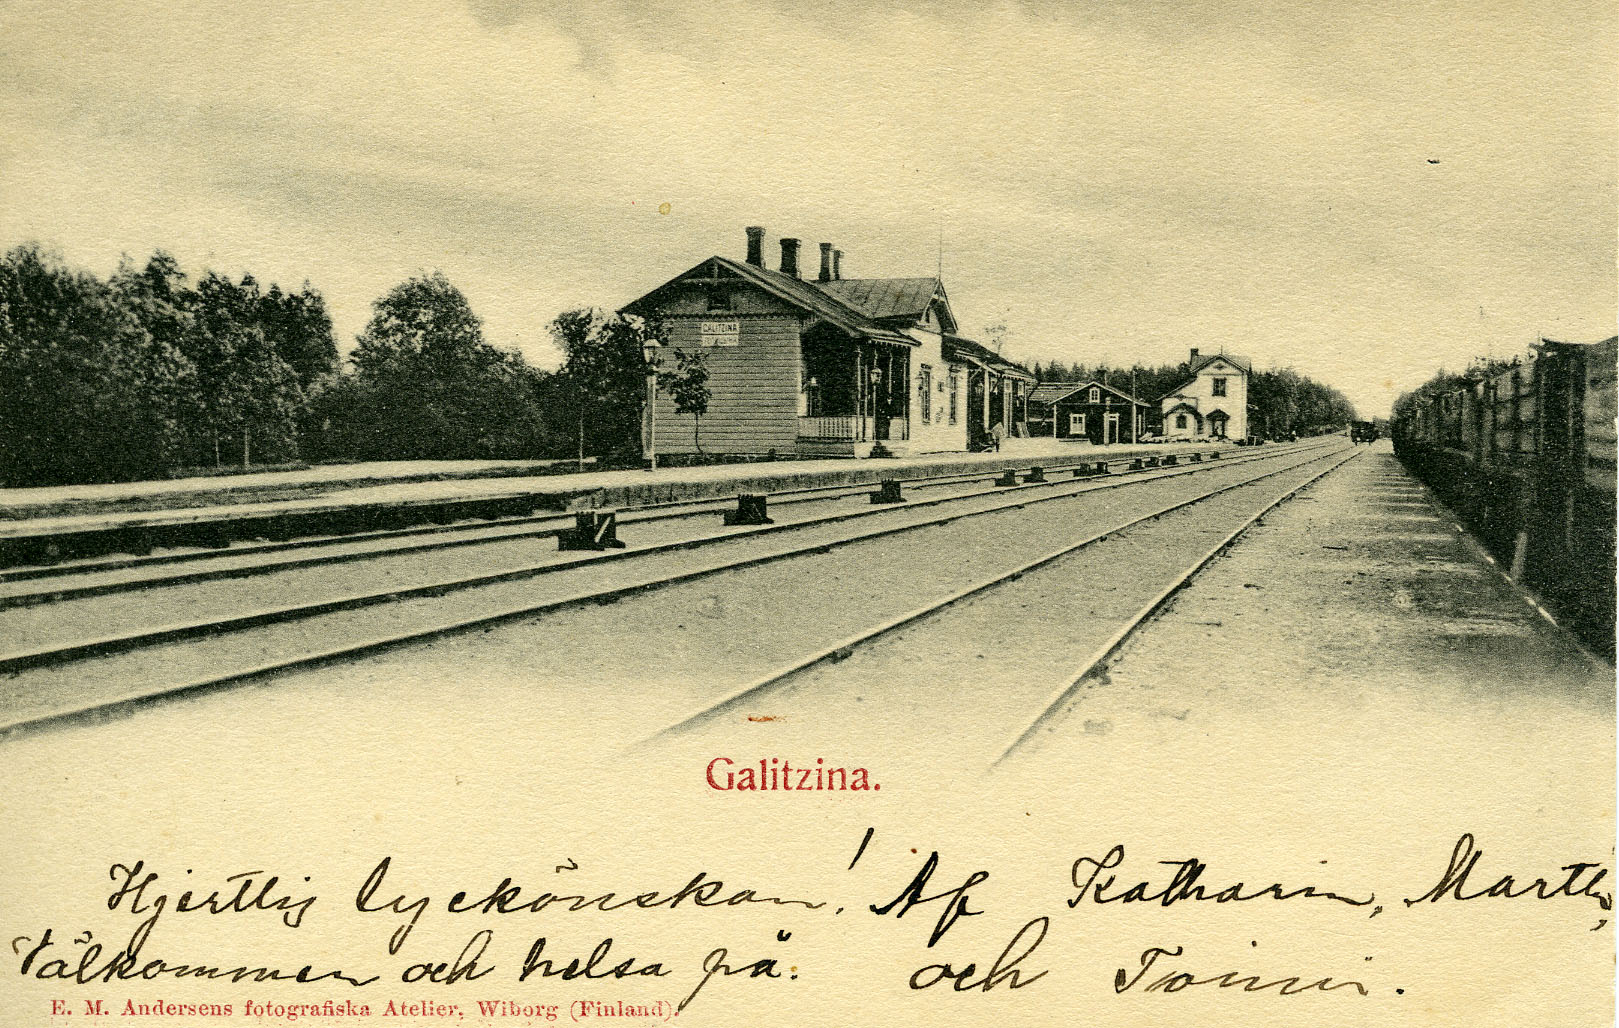 GALITZINA
Galitzina.
Hjertlig lyckönskan! Af Katharin, Martha,
Välkommen och helsa på. och Toimi.
E. M. Andersens fotografiska Atelier, Wiborg (Finland).